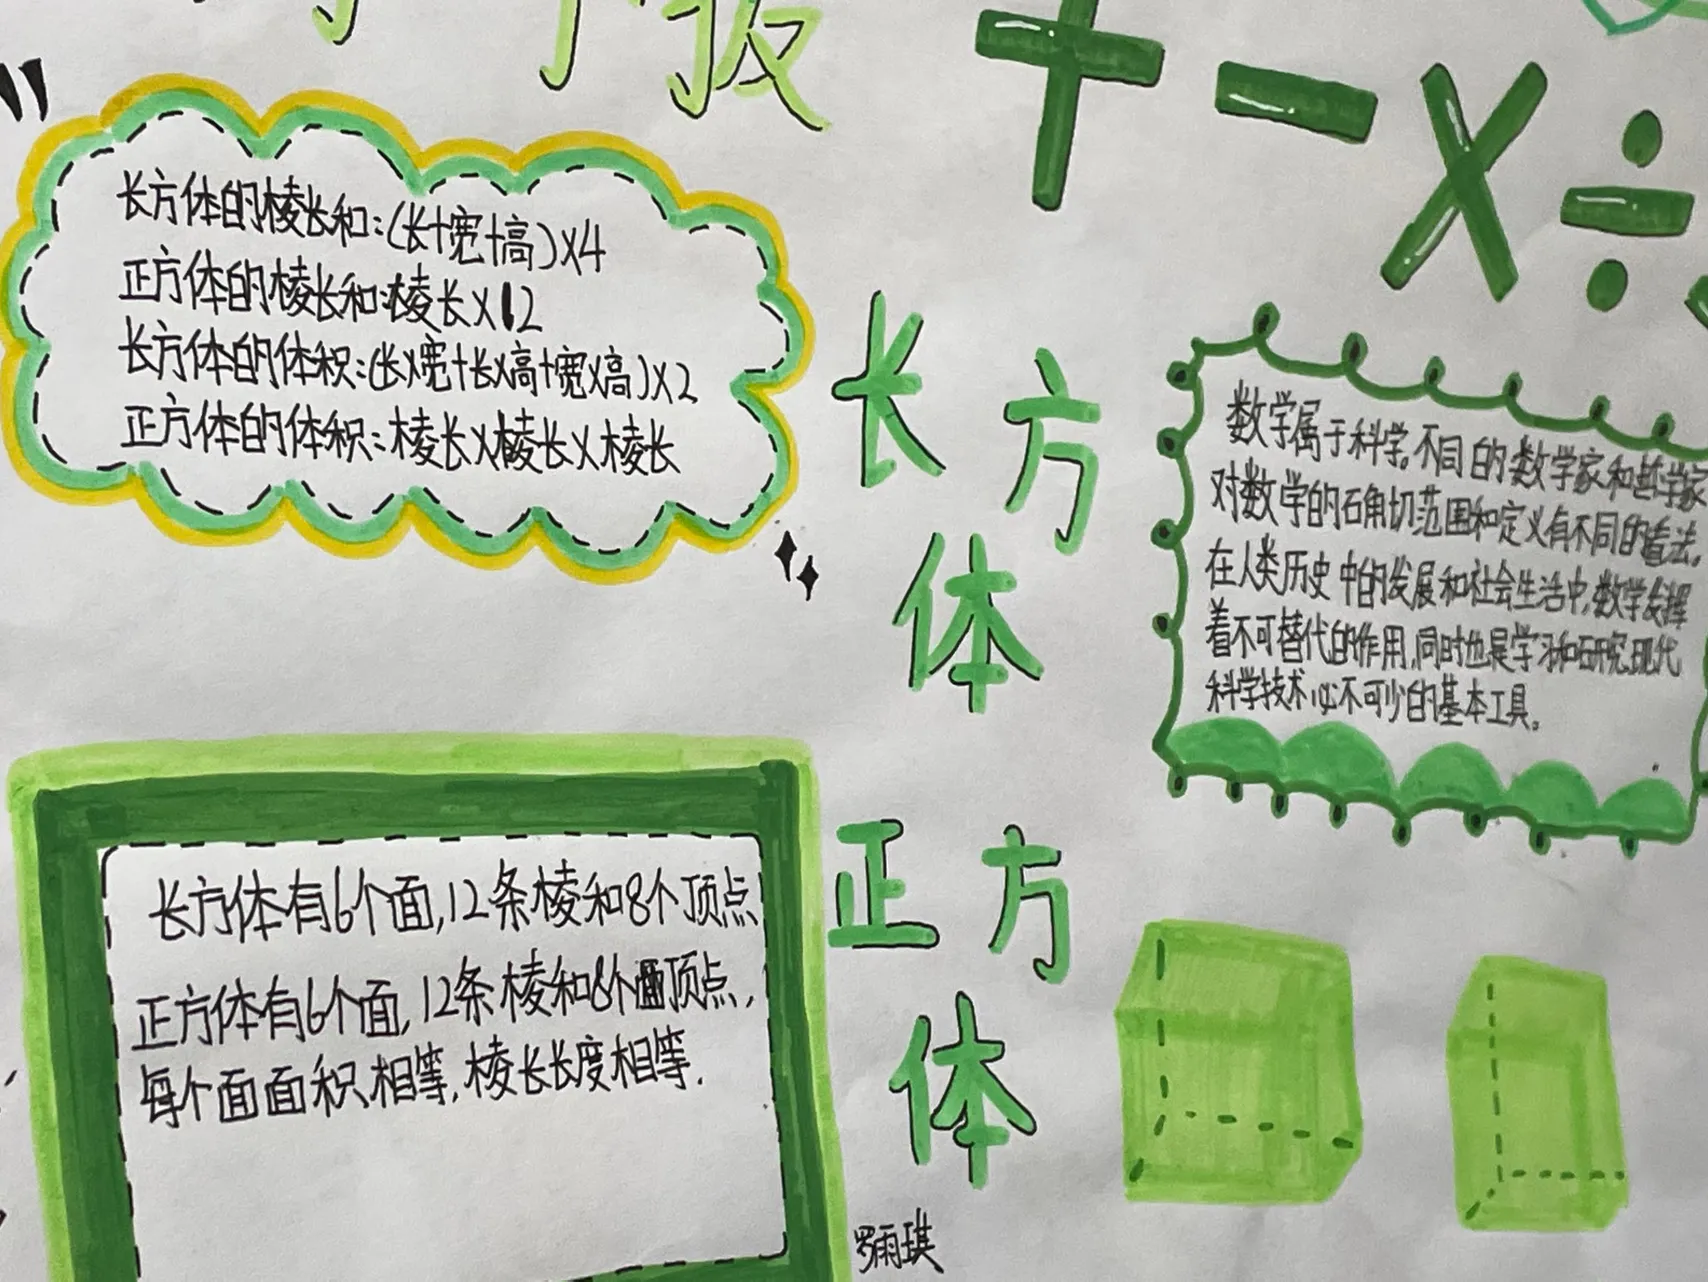 报
+ - × ÷
长方体的棱长和:(长+宽+高)×4
正方体的棱长和:棱长×12
长方体的体积:(长×宽+长×高+宽×高)×2
正方体的体积:棱长×棱长×棱长
长方
体
数学属于科学。不同的数学家和哲学家
对数学的石角切范围和定义有不同的看法。
在人类历史中的发展和社会生活中,数学发挥
着不可替代的作用,同时也是学习和研究现代
科学技术必不可少的基本工具。
长方体有6个面,12条棱和8个顶点
正方体有6个面,12条棱和8个顶点,
每个面面积相等,棱长长度相等.
正方
体
罗雨琪